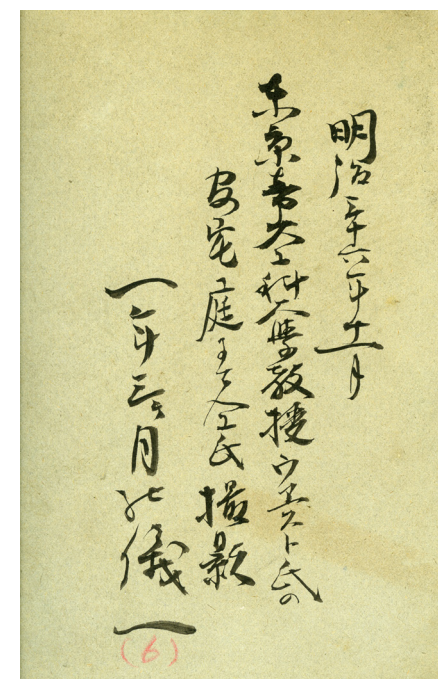 明治三十六年十一月
東京帝大工科大学教授ウエスト氏の
安宅ノ庭ニテ全氏撮影
一年三ヶ月の儀一
(6)